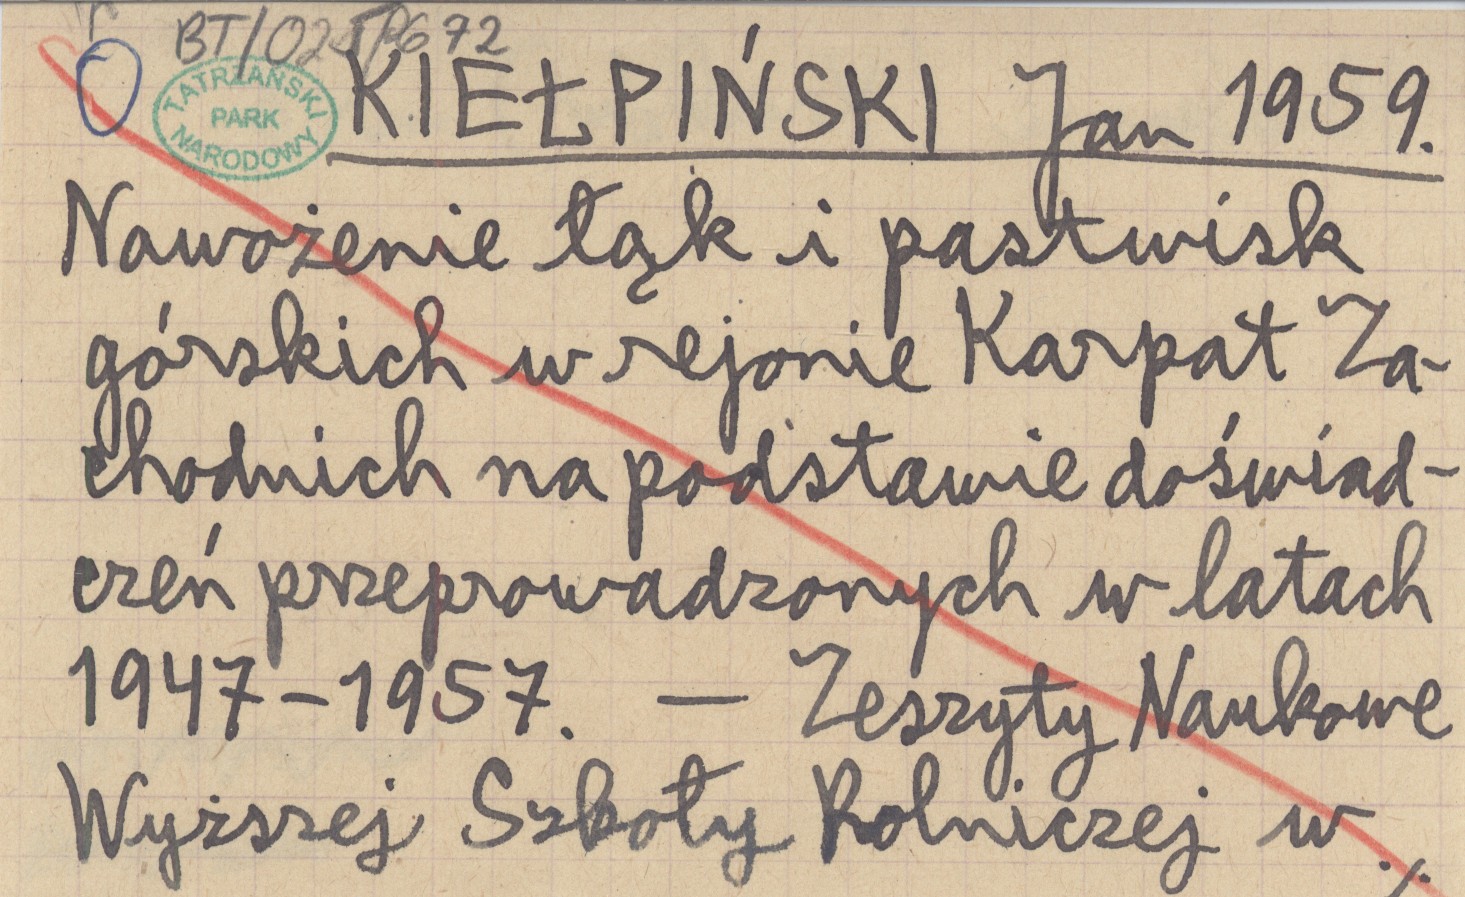 BT/02 672
TATRZAŃSKI
PARK
NARODOWY
KIEŁPIŃSKI Jan 1959.
Nawożenie łąk i pastwisk
górskich w rejonie Karpat Za-
chodnich na podstawie doświad-
czeń przeprowadzonych w latach
1947-1957. — Zeszyty Naukowe
Wyższej Szkoły Rolniczej w
./.